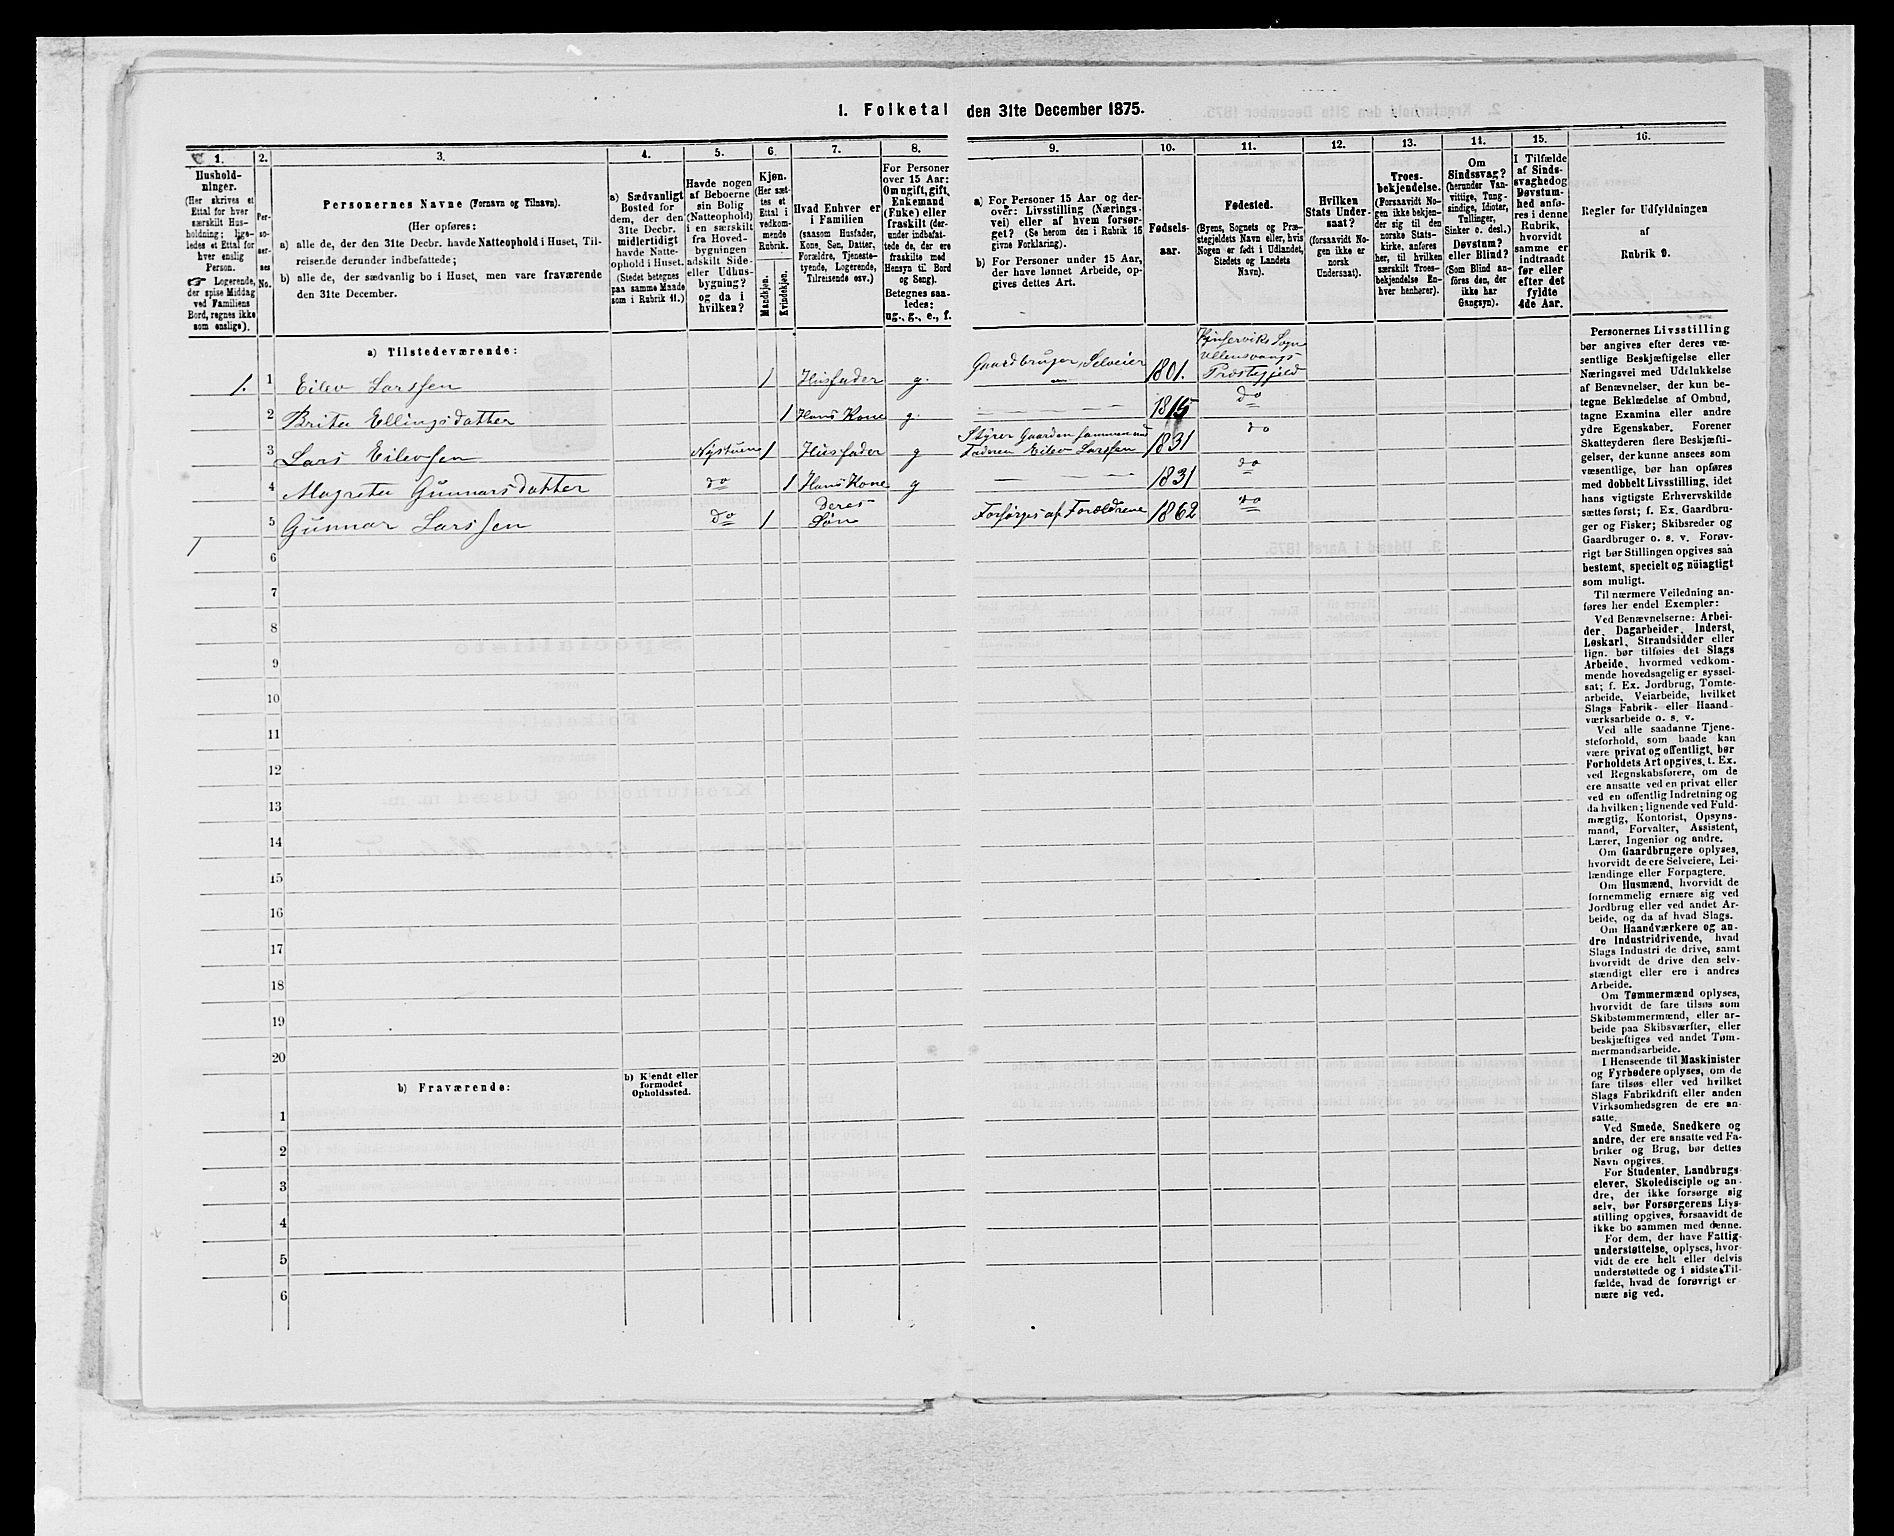 1. Folketal den 31te December 1875.
1.
Hushold-
ninger.
(Her skrives et
Ettal for hver
særskilt Hus-
holdning; lige-
ledes et Ettal for
hver enslig
Person.
☞ Logerende,
der spise Middag
ved Familiens
Bord, regnes ikke
som enslige).
2.
Per-
so-
ner-
nes
No.
3.
Personernes Navne (Fornavn og Tilnavn).
(Her opføres:
a) alle de, der den 31te Decbr. havde Natteophold i Huset, Til-
reisende derunder indbefattede;
b) alle de, der sædvanlig bo i Huset, men vare fraværende
den 31te December.
4.
a) Sædvanligt
Bosted for
dem, der den
31te Decbr.
midlertidigt
havde Natte-
ophold i Huset.
(Stedet betegnes
paa samme Maade
som i Rubrik 11.)
5.
Havde nogen
af Beboerne
sin Bolig
(Natteophold)
i en særskilt
fra Hoved-
bygningen
adskilt Side-
eller Udhus-
bygning?
og da i
hvilken?
6.
Kjøn.
(Her sæt-
tes et
Ettal i
vedkom-
mende
Rubrik.
Mandkjøn.
Kvindekjøn.
7.
Hvad Enhver er
i Familien
(saasom Husfader,
Kone, Søn, Datter,
Forældre, Tjeneste-
tyende, Logerende,
Tilreisende osv.)
8.
For Personer
over 15 Aar:
Om ugift, gift,
Enkemand
(Enke) eller
fraskilt (der-
under indbefat-
tede de, der ere
fraskilte med
Hensyn til Bord
og Seng).
Betegnes saa-
ledes:
ug., g., e., f.
9.
a) For Personer 15 Aar og der-
over: Livsstilling (Nærings-
vei) eller af hvem forsør-
get? (Se herom den i Rubrik 16
givne Forklaring).
b) For Personer under 15 Aar,
der have lønnet Arbeide, op-
gives dettes Art.
10.
Fødsels-
aar.
11.
Fødested.
(Byens, Sognets og Præ-
stegjeldets Navn eller, hvis
Nogen er født i Udlandet,
Stedets og Landets
Navn).
12.
Hvilken
Stats Under-
saat?
(forsaavidt No-
gen ikke er
norsk
Undersaat).
13.
Troes-
bekjendelse.
(Forsaavidt No-
gen ikke bekjen-
der sig til den
norske Stats-
kirke, anføres
her, til hvilken
særskilt Troes-
bekjendelse En-
hver henhører).
14.
Om
Sindssvag?
(herunder Van-
vittige, Tung-
sindige, Idioter,
Tullinger,
Sinker o. desl.)
Døvstum?
eller Blind?
(Som Blind an-
føres den, der
ikke har
Gangsyn).
15.
I Tilfælde
af Sinds-
svaghed og
Døvstum-
hed anfø-
res i denne
Rubrik,
hvorvidt
samme er
indtraadt
før eller
efter det
fyldte
4de Aar.
16.
Regler for Udfyldningen
af
Rubrik 9.
a) Tilstedeværende:
1. 1 Eilev Larssen 1 Husfader g. Gaardbruger, Selveier 1801. Kinserviks Sogn Ullensvangs Præstegjeld
2 Brita Ellingsdatter 1 Hans Kone g. 1815 do
3 Lars Eilevsen Nystuene 1 Husfader g Styrer Gaarden sammen med Faderen Eilev Larssen 1831 do
4 Magreta Gunnarsdatter do 1 Hans Kone g 1831 do
5 Gunnar Larssen do 1 deres Søn Forsørges af Forældrene 1862 do
1
6
7
8
9
10
11
12
13
14
15
16
17
18
19
20
b) Fraværende:
b) Kjendt eller
formodet
Opholdssted.
1
2
3
4
5
6
Personernes Livsstilling
bør angives efter deres væ-
sentlige Beskjæftigelse eller
Næringsvei med Udelukkelse
af Benævnelser, der kun be-
tegne Beklædelse af Ombud,
tagne Examina eller andre
ydre Egenskaber. Forener
Skatteyderen flere Beskjæfti-
gelser, der kunne ansees som
væsentlige, bør han opføres
med dobbelt Livsstilling, idet
hans vigtigste Erhvervskilde
sættes først; f. Ex. Gaardbru-
ger og Fisker; Skibsreder og
Gaardbruger o. s. v. Forøv-
rigt bør Stillingen opgives saa
bestemt, specielt og nöiagtigt
som muligt.
Til nærmere Veiledning an-
føres her endel Exempler:
Ved Benævnelserne: Arbei-
der, Dagarbeider, Inderst,
Løskarl, Strandsidder eller
lign. bør tilføies det Slags
Arbeide, hvormed vedkom-
mende hovedsagelig er syssel-
sat; f. Ex. Jordbrug, Tomte-
arbeide, Veiarbeide, hvilket
Slags Fabrik- eller Haand-
værksarbeide o. s. v.
Ved alle saadanne Tjene-
steforhold, som baade kan
være privat og offentligt, bør
Forholdets Art opgives, t. Ex.
ved Regnskabsførere, om de
ere ansatte ved en privat eller
ved en offentlig Indretning og
da hvilken; lignende ved Fuld-
mægtig, Kontorist, Opsyns-
mand, Forvalter, Assistent,
Lærer, Ingeniør og andre.
Om Gaardbrugere oplyses,
hvorvidt de ere Selveiere, Lei-
lændinge eller Forpagtere.
Om Husmænd, hvorvidt de
fornemmelig ernære sig ved
Jordbrug eller ved andet Ar-
beide, og da af hvad Slags.
Om Haandværkere og an-
dre Industridrivende, hvad
Slags Industri de drive, samt
hvorvidt de drive den selv-
stændigt eller ere i andres
Arbeide.
Om Tømmermænd oplyses,
hvorvidt de fare tilsøs som
Skibstømmermænd, eller ar-
beide paa Skibsværfter, eller
beskjæftiges ved andet Tøm-
mermandsarbeide.
I Henseende til Maskinister
og Fyrbødere oplyses, om de
fare tilsøs eller ved hvilket
Slags Fabrikdrift eller anden
Virksomhedsgren de ere an-
satte.
Ved Smede, Snedkere og
andre, der ere ansatte ved Fa-
briker og Brug, bør dettes
Navn opgives.
For Studenter, Landbrugs-
elever, Skoledisciple og an-
dre, der ikke forsørge sig
selv, bør Forsørgerens Livs-
stilling opgives, forsaavidt de
ikke bo sammen med denne.
For dem, der have Fattig-
understøttelse, oplyses, hvor-
vidt de ere helt eller delvis
understøttede og i sidste Til-
fælde, hvad de forøvrigt er-
nære sig ved.